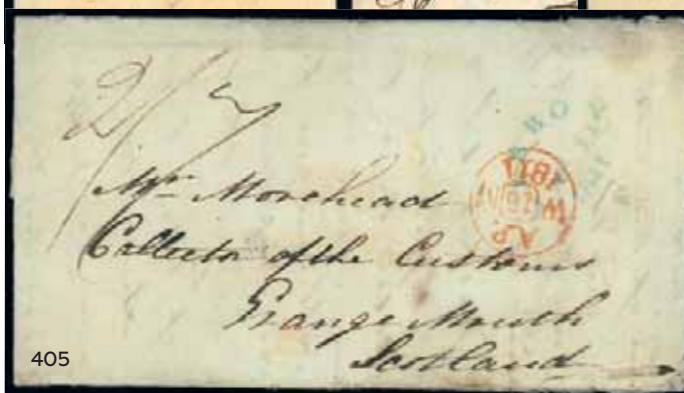 2/7
Mr. Morehead
Collector of the Customs
Grange Mouth
Scotland
AP
1811
405